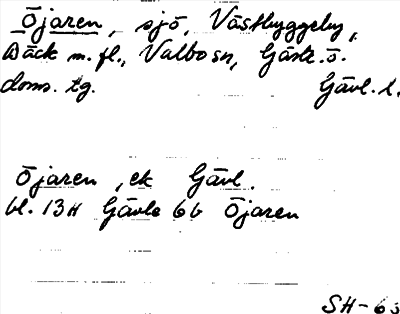 Öjaren, sjö, Västbyggeby,
Bäck m.fl., Valbo sn, Gästr. ö.
doms. tg. Gävl. l.
Öjaren, ek Gävl.
bl. 13H Gävle 6b Öjaren
SH-63